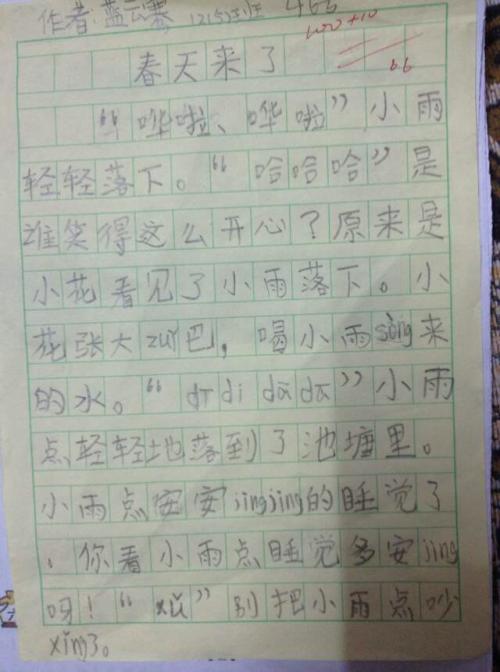 作者:蓝云寨 (215)班
100+10
春天来了
“哗啦、哗啦”小雨
轻轻落下。“哈哈哈”是
谁笑得这么开心?原来是
小花看见了小雨落下。小
花张大zuǐ巴,喝小雨sòng来
的水。“dī di dā dā”小雨
点轻轻地落到了池塘里。
小雨点安安jingjing的睡觉了
。你看小雨点睡觉多安jing
呀!“xū”别把小雨点吵
xǐng了。